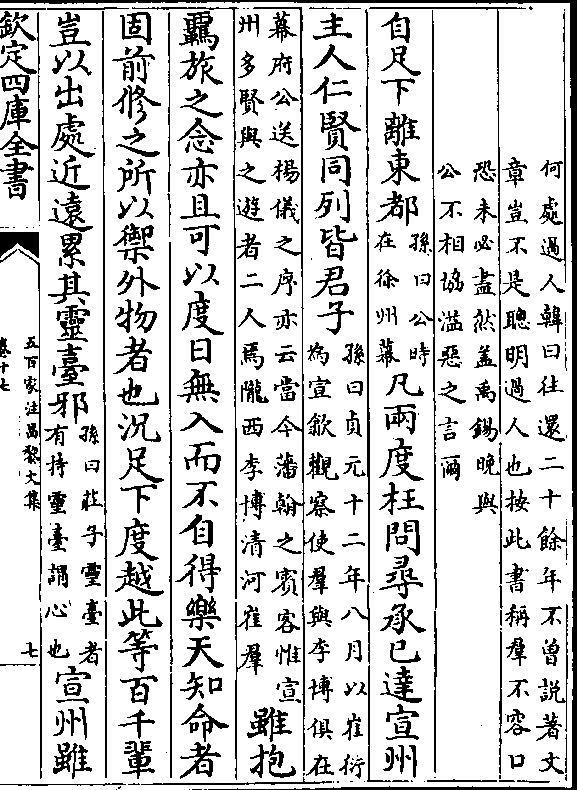 何處過人韓曰往還二十餘年不曾說著文
章豈不是聰明過人也按此書稱羣不容口
恐未必盡然蓋禹錫晚與
公不相協溢惡之言爾
自足下離東都孫曰公時
在徐州幕凡兩度枉問尋承已達宣州
主人仁賢同列皆君子孫曰貞元十二年八月以崔衍
為宣歙觀察使羣與李博俱在
幕府公送楊儀之序亦云當今藩翰之賓客惟宣
州多賢與之遊者二人焉隴西李博清河崔羣雖抱
羈旅之念亦且可以度日無入而不自得樂天知命者
固前修之所以禦外物者也況足下度越此等百千輩
豈以出處近遠累其靈臺邪孫曰莊子靈臺者
有持靈臺謂心也宣州雖
欽定四庫全書
五百家注昌黎文集
卷十七
七